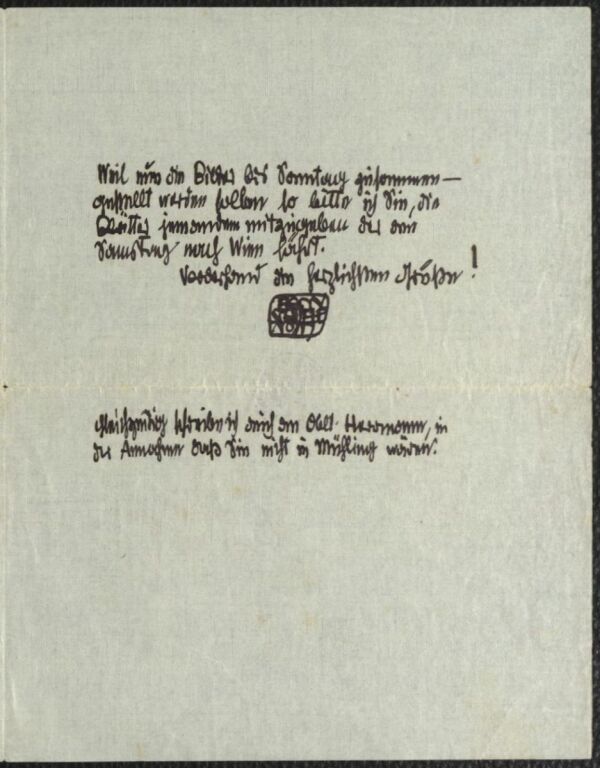 Weil nun die Bilder bis Sonntag zusammen—
gestellt werden sollen so bitte ich Sie, die
Blätter jemandem mitzugeben der am
Samstag nach Wien fährt.
Vorderhand die herzlichsten Grüße!
Gleichzeitig schreibe ich auch an Oblt. Herrmann, in
der Annahme daß Sie nicht in Mühling wären.